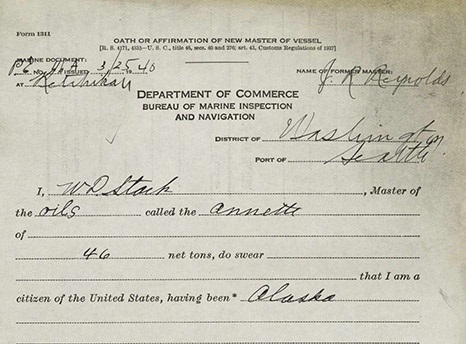 Form 1311
OATH OR AFFIRMATION OF NEW MASTER OF VESSEL
[R. S. 4171, 4335—U. S. C., title 46, secs. 40 and 276; art. 43, Customs Regulations of 1937]
MARINE DOCUMENT:
PE NO. ISSUED 3/25, 1940
AT Ketchikan
NAME OF FORMER MASTER:
J. R Reynolds
DEPARTMENT OF COMMERCE
BUREAU OF MARINE INSPECTION
AND NAVIGATION
DISTRICT OF Washington
PORT OF Seattle
I, W D Stack, Master of
the oils called the Annette
of
46 net tons, do swear
that I am a
citizen of the United States, having been* Alaska